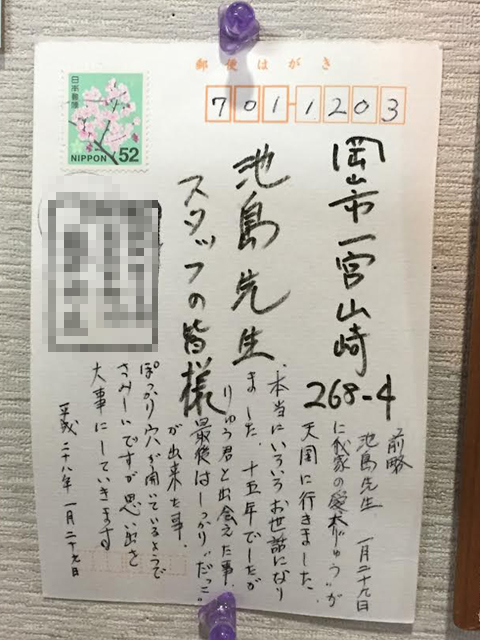 郵便はがき
701-1203
日本郵便
NIPPON 52
岡山市一宮山崎
268-4
池島先生
スタッフの皆様
前略
池島先生、一月二十九日
に我家の愛犬"りゅう"が
天国に行きました。
本当にいろいろお世話になり
ました。十五年でしたが
りゅう君と出会えた事、
最後はしっかり"だっこ"
が出来た事、
ぽっかり穴が開いているようで
さみしいですが思い出を
大事にしていきます。
平成二十八年一月二十九日